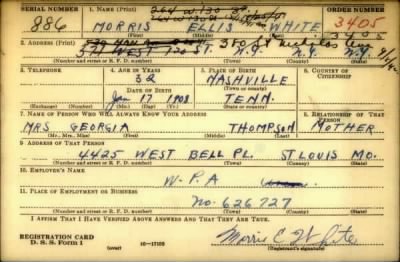 SERIAL NUMBER 1. NAME (Print) ORDER NUMBER
886 MORRIS ELLIS WHITE 3405
(First) (Middle) (Last) 3405
2. ADDRESS (Print)
321 WEST 120 ST. N.Y. N.Y. N.Y.
(Number and street or R. F. D. number) (Town) (County) (State)
3. TELEPHONE 4. AGE IN YEARS 5. PLACE OF BIRTH 6. COUNTRY OF CITIZENSHIP
32 NASHVILLE
(Town or county)
DATE OF BIRTH
Jan 17 1908 TENN.
(Exchange) (Number) (Mo.) (Day) (Yr.) (State or country)
7. NAME OF PERSON WHO WILL ALWAYS KNOW YOUR ADDRESS 8. RELATIONSHIP OF THAT PERSON
MRS GEORGIA THOMPSON MOTHER
(Mr., Mrs., Miss) (First) (Middle) (Last)
9. ADDRESS OF THAT PERSON
4425 WEST BELL PL. ST LOUIS MO.
(Number and street or R. F. D. number) (Town) (County) (State)
10. EMPLOYER'S NAME
W.P.A
11. PLACE OF EMPLOYMENT OR BUSINESS
No. 626727
(Number and street or R. F. D. number) (Town) (County) (State)
I AFFIRM THAT I HAVE VERIFIED ABOVE ANSWERS AND THAT THEY ARE TRUE.
REGISTRATION CARD
D. S. S. Form 1 (over) 16-17105 Morris E White
(Registrant's signature)